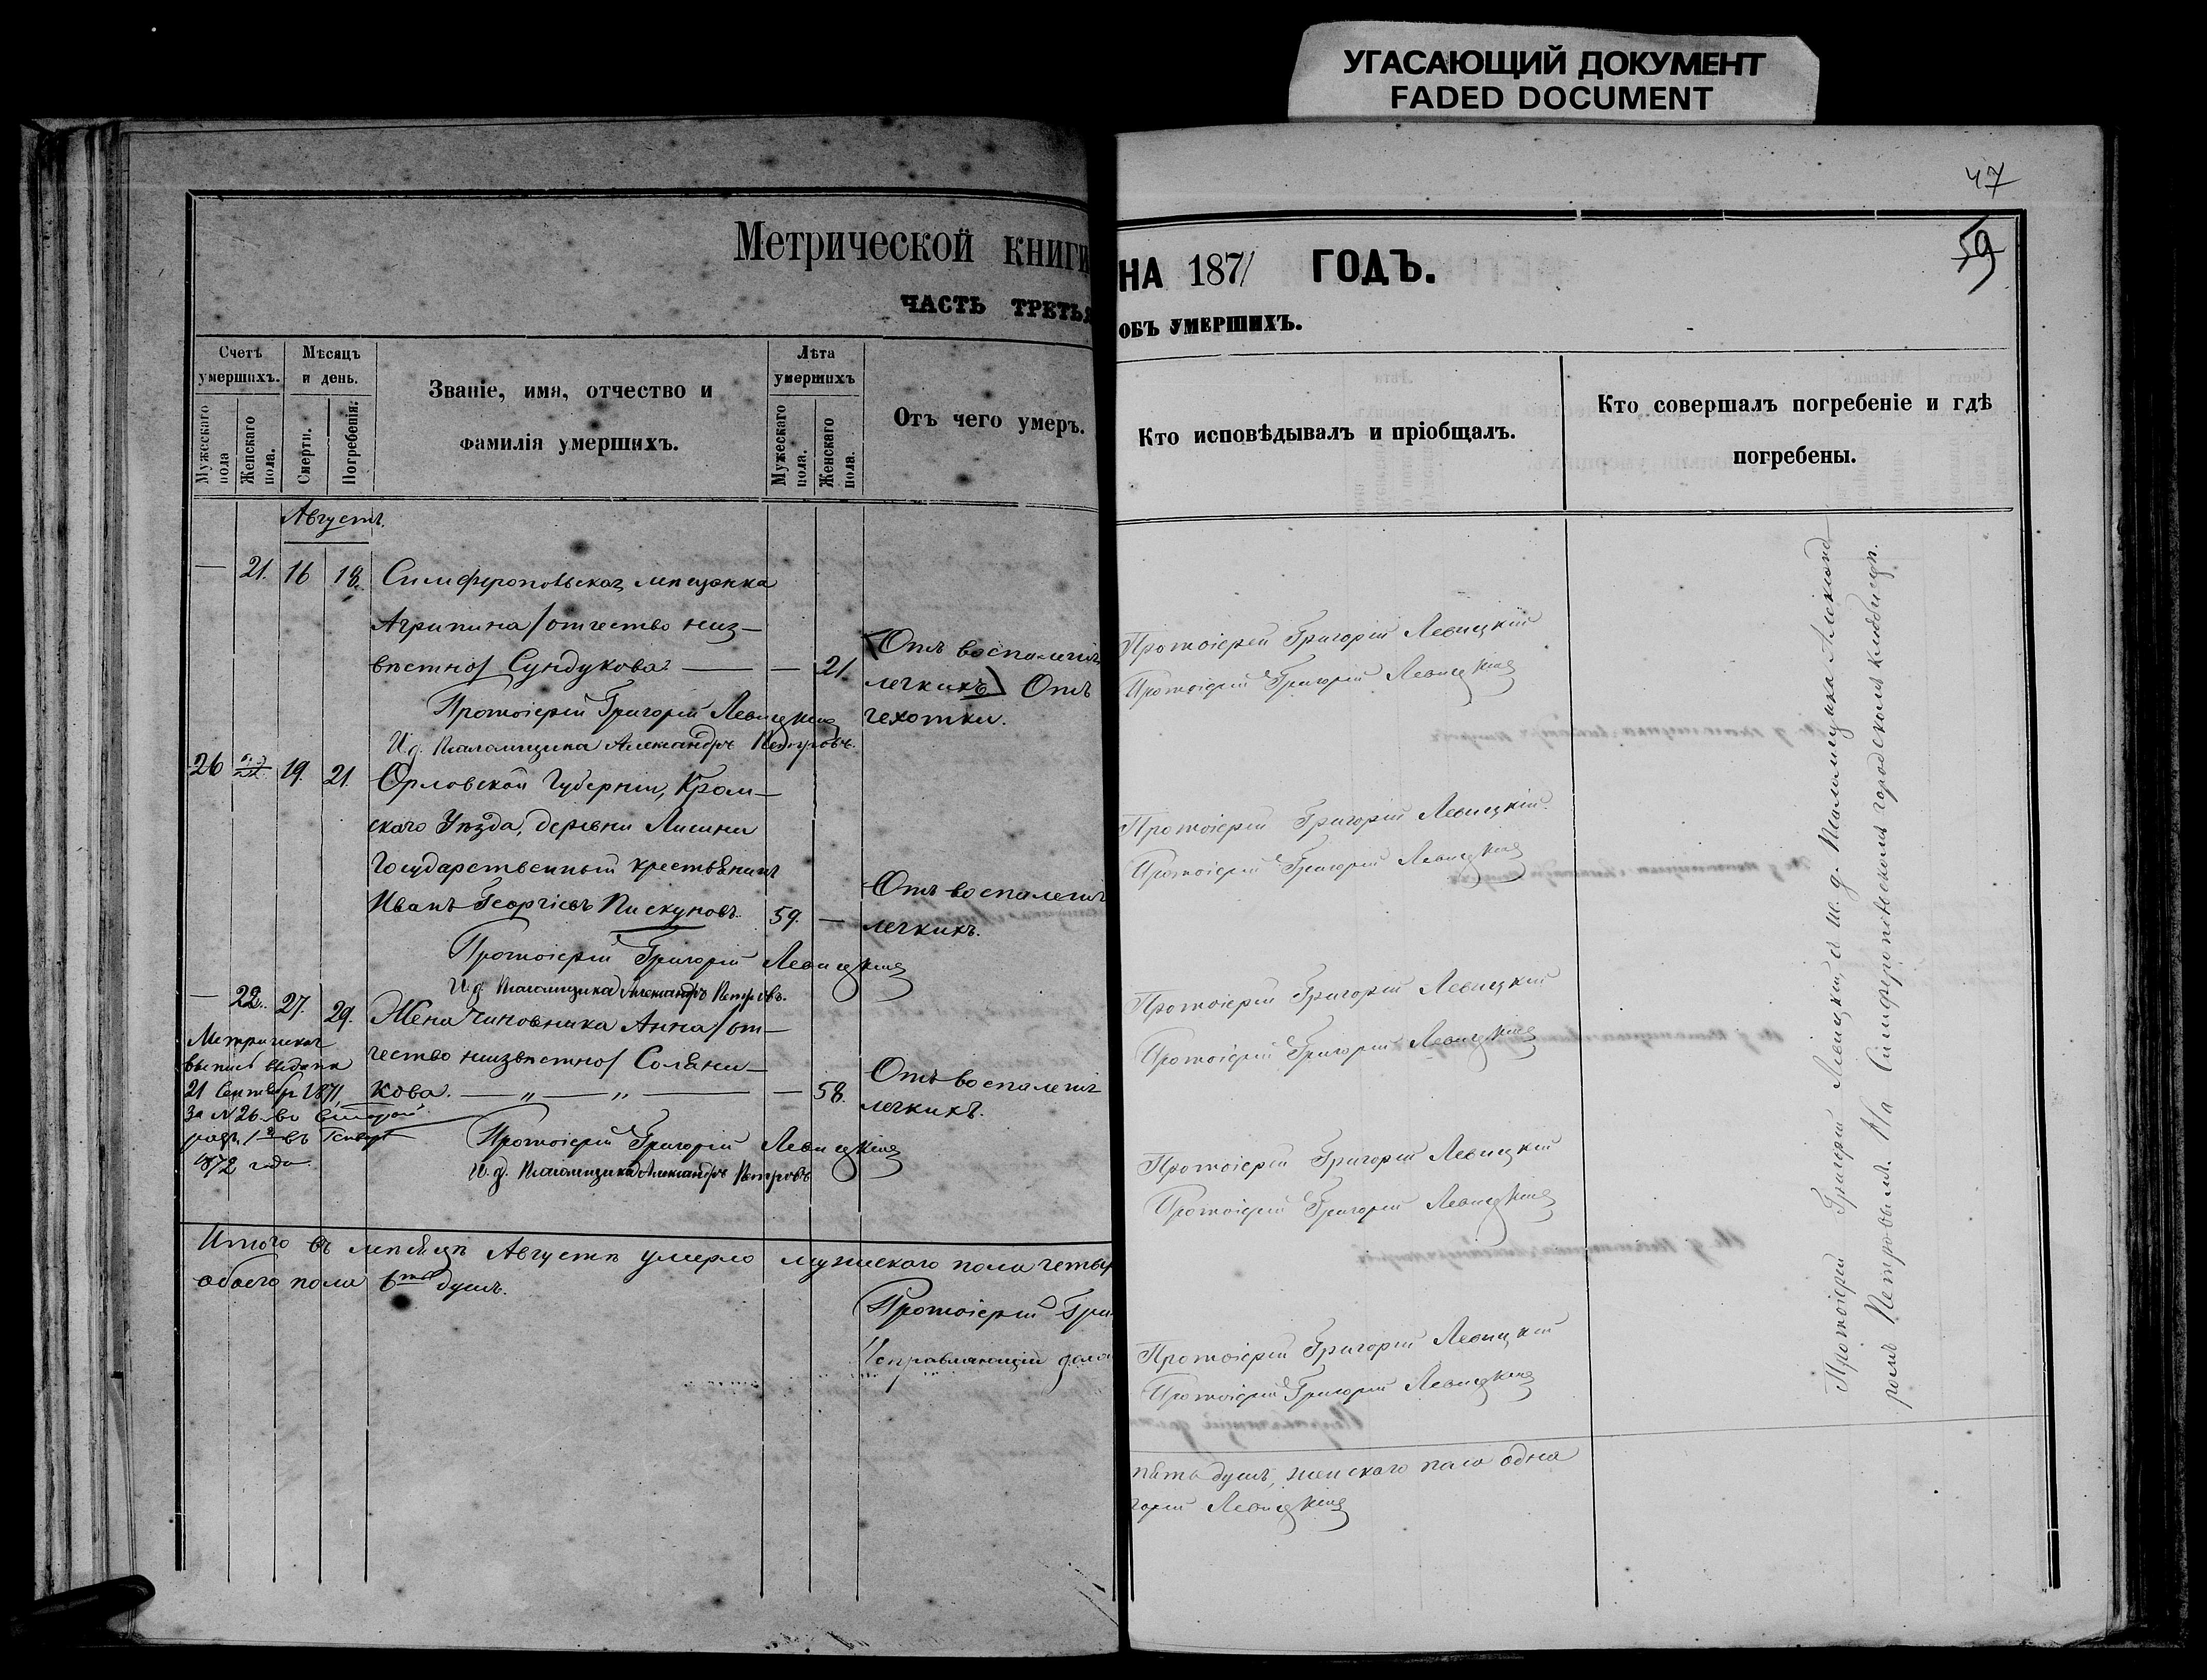 УГАСАЮЩИЙ ДОКУМЕНТ
FADED DOCUMENT
Метрической книги
ЧАСТЬ ТРЕТЬЯ
Счетъ умершихъ.
Мужескаго пола
Женскаго пола.
Мѣсяцъ и день.
Смерти.
Погребенія.
Званіе, имя, отчество и
фамилія умершихъ.
Лѣта умершихъ
Мужескаго пола.
Женскаго пола.
Отъ чего умеръ.
Августъ.
— 21. 16 18. Симферопольская мѣщанка
Агрипина /отчество неиз-
вѣстно/ Сундукова. — — 21.
Отъ воспаленія
легкихъ) Отъ
чехотки.
Протоіерей Григорій Левицкій
И.д. Псаломщика Александръ Петровъ.
26 19. 21. Орловской Губерніи, Кром-
скаго Уѣзда, деревни Лисини
Государственный крестьянинъ
Иванъ Георгіевъ Пискуновъ. 59. —
Отъ воспаленія
легкихъ.
Протоіерей Григорій Левицкій
И.д. Псаломщика Александръ Петровъ.
— 22. 27. 29. Жена чиновника Анна /от-
чество неизвѣстно/ Соляни-
кова. — „ — „ — — 58.
Отъ воспаленія
легкихъ.
Метрическая
выпись выдана
21 Сентября 1871
за №26. во второй
разъ въ Январѣ
1872 года.
Протоіерей Григорій Левицкій
И.д. Псаломщика Александръ Петровъ
Итого въ мѣсяцѣ Августѣ умерло мужескаго пола четыр
обоего пола 6ть душъ.
Протоіерей Гри
Исправляющій долж
47
59
НА 1871 ГОДЪ.
ОБЪ УМЕРШИХЪ.
Кто исповѣдывалъ и пріобщалъ.
Кто совершалъ погребеніе и гдѣ
погребены.
Протоіерей Григорій Левицкій
Протоіерей Григорій Левицкій
Протоіерей Григорій Левицкій.
Протоіерей Григорій Левицкій
Протоіерей Григорій Левицкій
Протоіерей Григорій Левицкій
Протоіерей Григорій Левицкій
Протоіерей Григорій Левицкій
Протоіерей Григорій Левицкій
Протоіерей Григорій Левицкій
Протоіерей Григорій Левицкій, с и. д. Псаломщика Александ
ромъ Петровымъ. На Симферопольскомъ городскомъ кладбищѣ.
пять душъ, женскаго пола одна
горій Левицкій